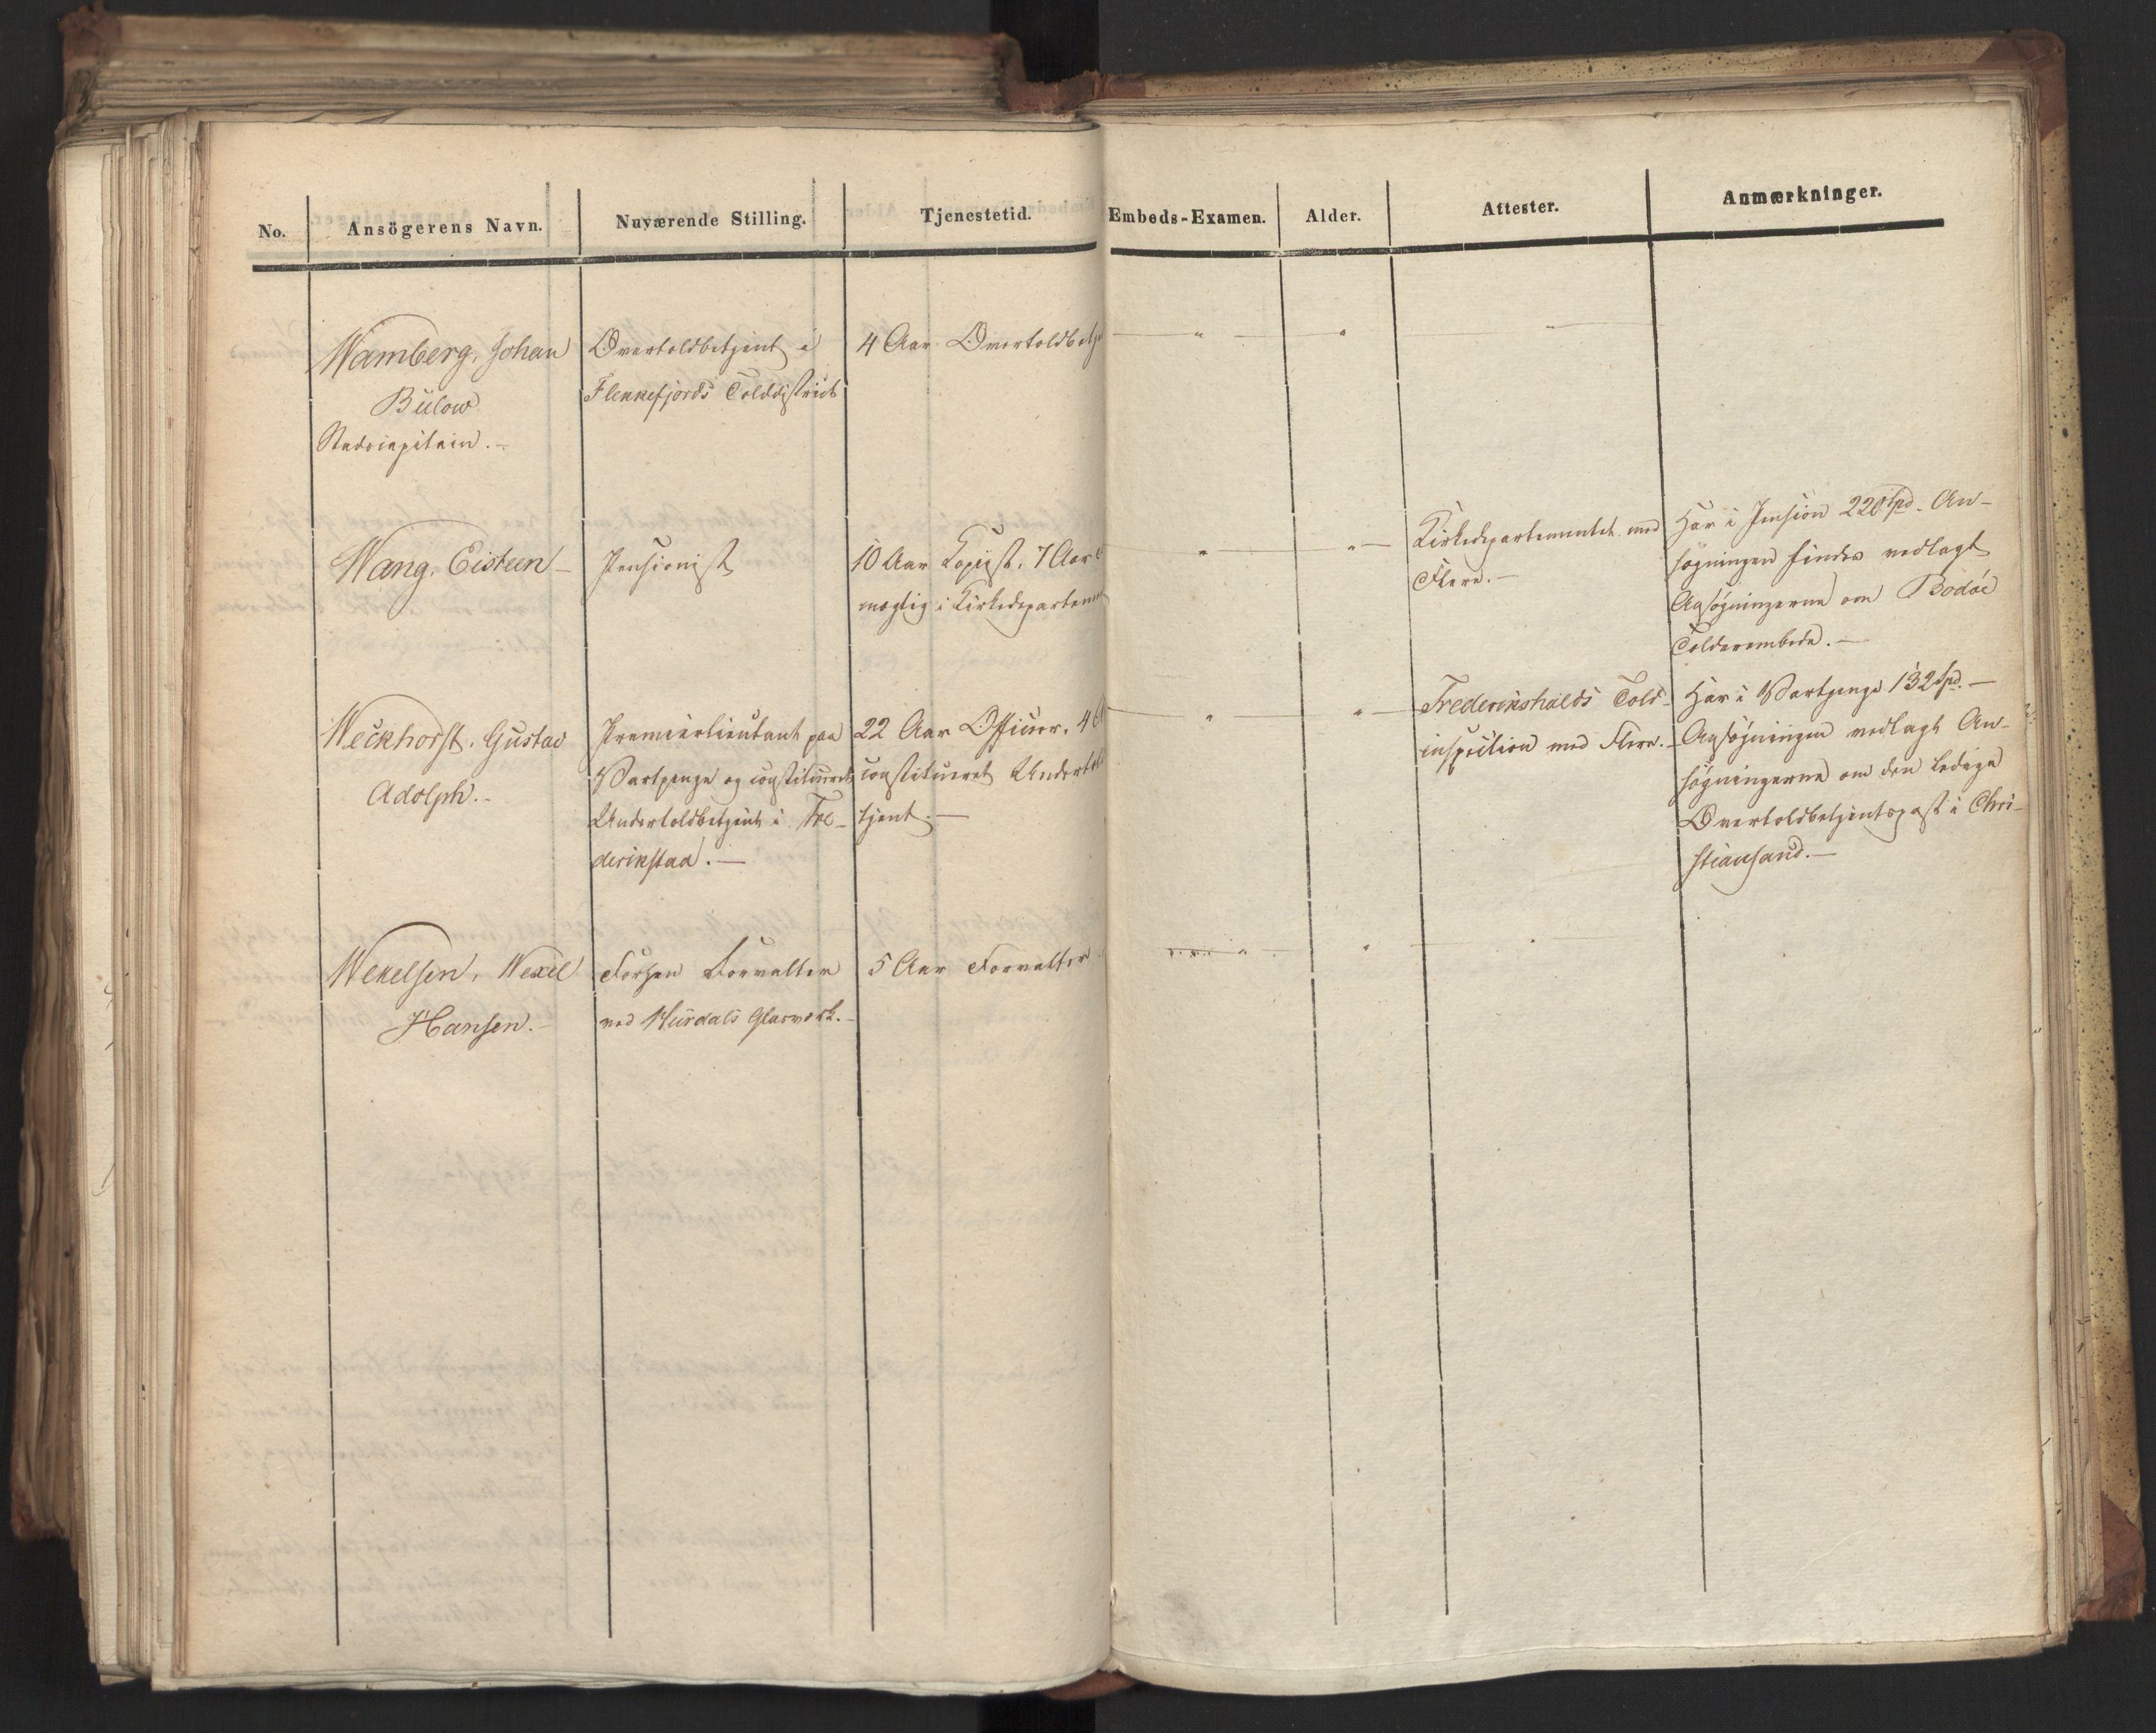 No.
Ansögerens Navn.
Nuværende Stilling.
Tjenestetid.
Embeds-Examen.
Alder.
Attester.
Anmærkninger.
Wamberg, Johan
Bülow
Stadscapitain.-
Overtoldbetjent i
Flekkefjords Tolddistrict
4 Aar Overtoldbetj
Wang, Eisteen-
Pensionist
10 Aar Kopiist, 7 Aar
mægtig i Kirkedepartem
Kirkedepartementet med
Flere.-
Har i Pension 220 Spd. An-
søgningen findes vedlagt
Ansøgningerne om Bodøe
Tolderembede.-
Weckhorst, Gustav
Adolph.-
Premierlieutant paa
Vartpenge og constitueret
Undertoldbetjent i Fre-
derikstad.-
22 Aar Officier, 4
constitueret Undertol
tjent.-
Frederikshalds Told-
inspection med Flere.-
Har i Vartpenge 132 Spd.-
Ansøgningen vedlagt An-
søgningerne om den ledige
Overtoldbetjentspost i Chri-
stiansand.-
Wekelsen, Wexel
Hansen.-
Forhen Forvalter
ved Hurdals Glasværk.-
5 Aar Forvalter